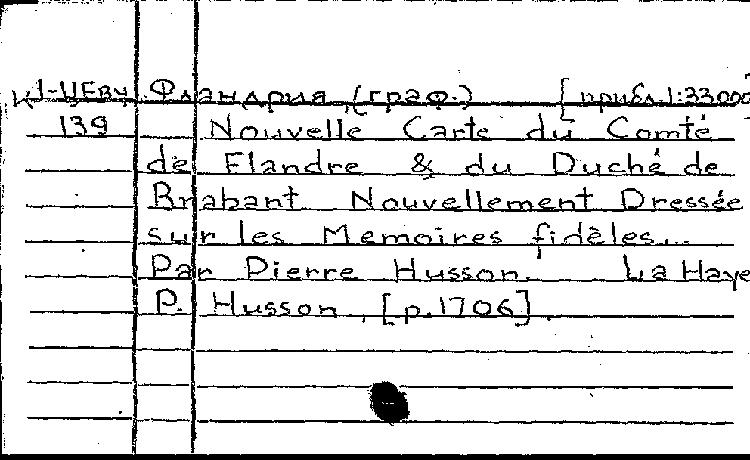 К1-ЦЕвч Фландрия (граф.) [прибл.1:33000
139 Nouvelle Carte du Comté
de Flandre & du Duché de
Brabant Nouvellement Dressée
sur les Memoires fidèles...
Par Pierre Husson. La Haye
P. Husson, [p.1706].